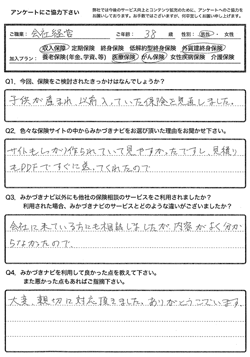 アンケートにご協力下さい
弊社では今後のサービス向上とコンテンツ拡充のために、アンケートへのご協力を
お願いしております。お手数ではございますが、何卒宜しくお願い申し上げます。
ご職業： 会社経営 ご年齢： 38 歳 性別： 男性・女性
加入プラン：
収入保障 ／ 定期保険 終身保険 低解約型終身保険 外貨建終身保険
養老保険(年金,学資,等) 医療保険 がん保険 女性疾病保険 介護保険
Q1、今回、保険をご検討されたきっかけはなんでしょうか？
子供が産まれ 以前入っていた保険を見直しました。
Q2、色々な保険サイトの中からみかづきナビをお選び頂いた理由をお聞かせ下さい。
サイトもしっかり作られていて見やすかったですし、見積り
もPDFですぐに送ってくれたので
Q3、みかづきナビ以外にも他社の保険相談のサービスをご利用されましたか？
利用された場合、みかづきナビのサービスとどのような違いがございましたか？
会社に来ている方にも相談しましたが、内容がよく分か
らなかったので
Q4、みかづきナビを利用して良かった点を教えて下さい。
また悪かった点もあればご指摘下さい。
大変、親切に対応頂きました。ありがとうございます。